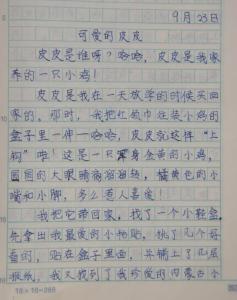 9月23日
可爱的皮皮
皮皮是谁呀?哈哈,皮皮是我家
养的一只小鸡!
皮皮是我在一天放学的时候买回
家的。那时,我把红领巾往装小鸡的
盒子里一伸一哈哈,皮皮就这样“上
钩”啦!这是一只浑身金黄的小鸡,
圆圆的大眼睛滴溜溜转,橘黄色的小
嘴和小脚,多么惹人喜爱!
我把它带回家,找了一个小鞋盒,
先拿出我最爱的小贴贴,挑了几个好
看的,贴在盒子里面,并铺上了几层
报纸,我又找到了我珍爱的内蒙古小
18×16=288